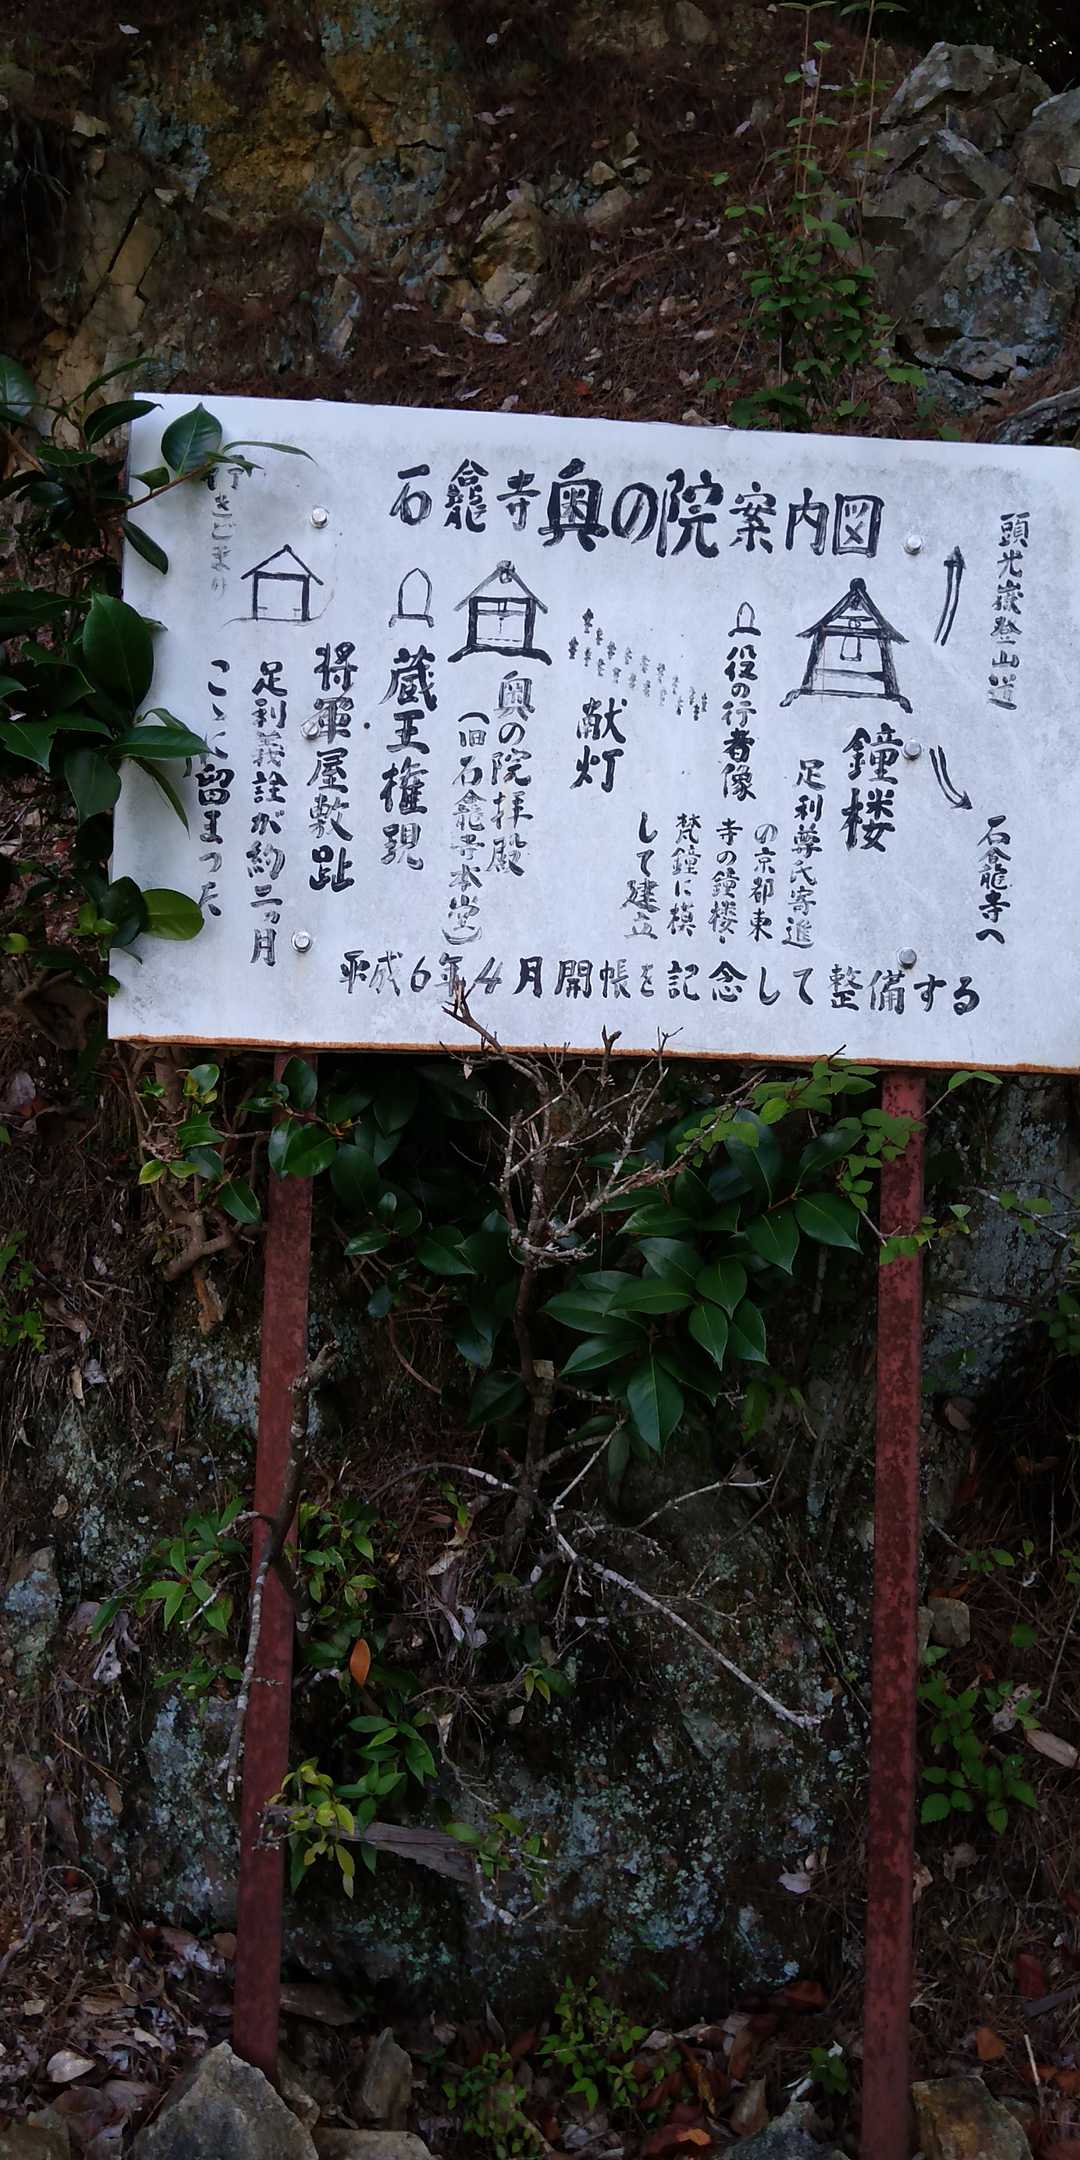 石龕寺奥の院案内図
頭光嶽登山道
石龕寺へ
鐘楼
足利尊氏寄進
の京都東
寺の鐘楼・
梵鐘に模
して建立
役の行者像
献灯
奥の院拝殿
(旧石龕寺本堂)
蔵王権現
将軍屋敷趾
足利義詮が約二ヵ月
こゝに留まった
行きどまり
平成6年4月開帳を記念して整備する